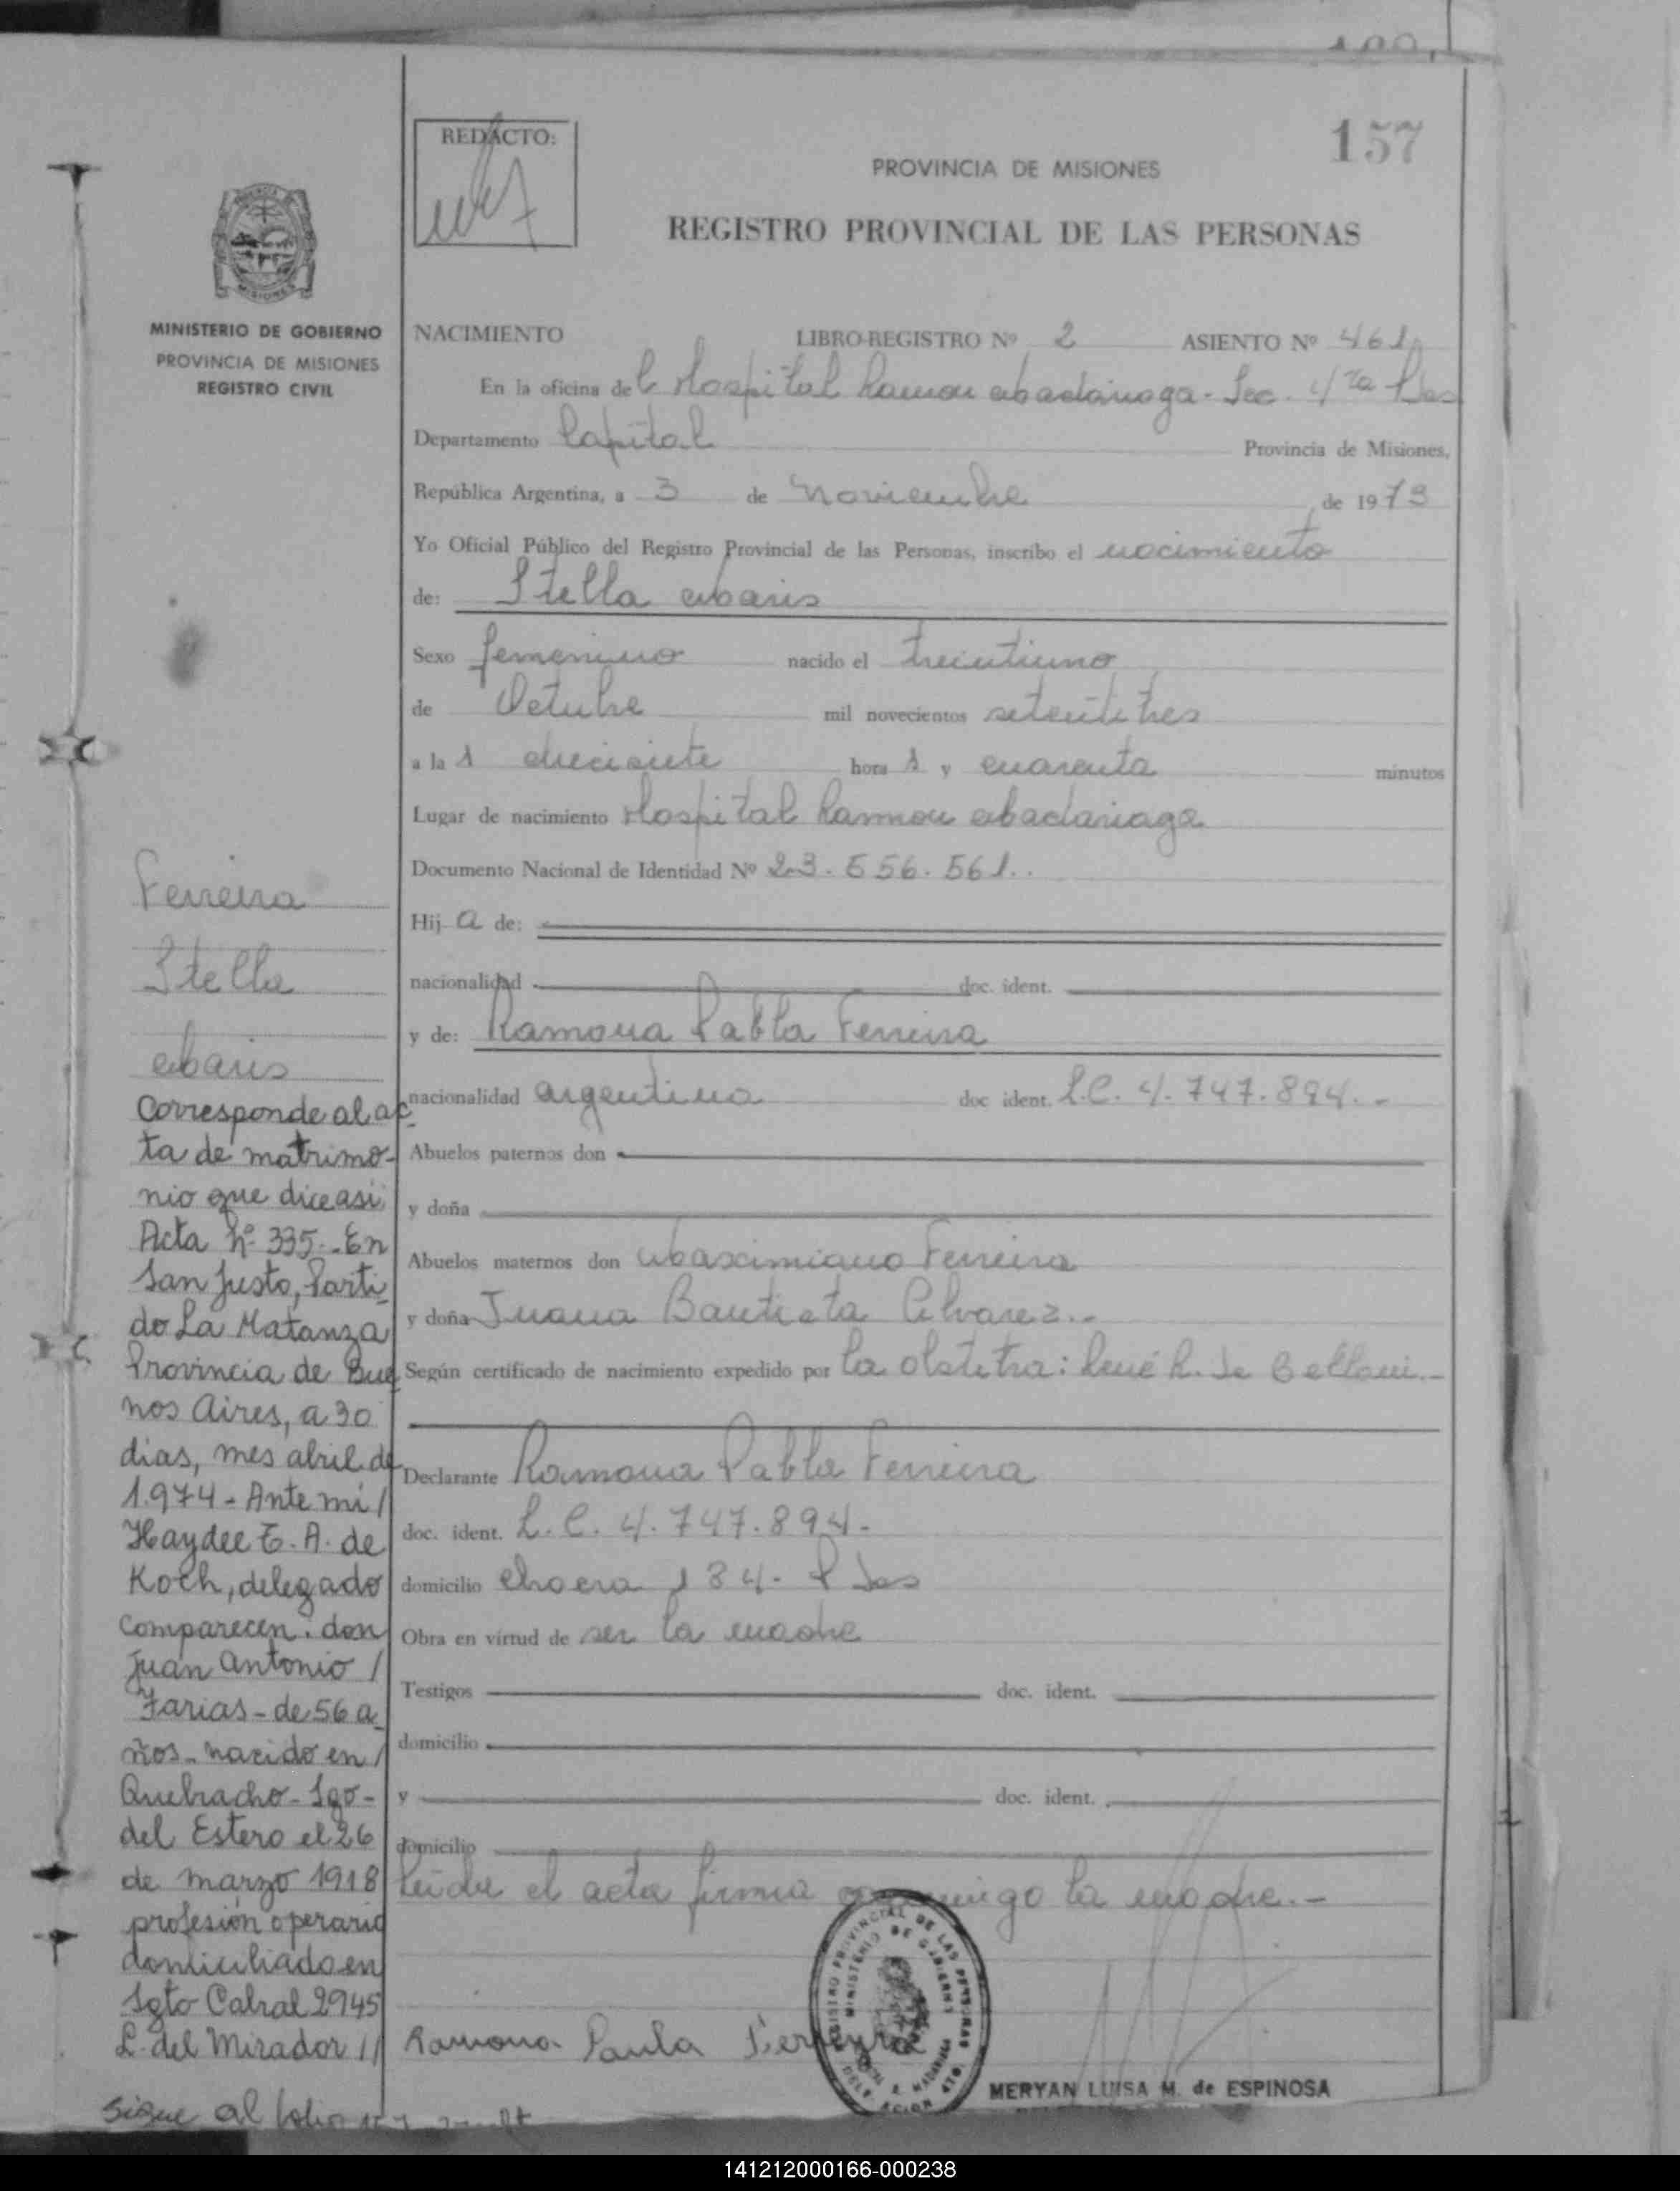 157
REDACTO:
PROVINCIA DE MISIONES
REGISTRO PROVINCIAL DE LAS PERSONAS
MISIONES
MINISTERIO DE GOBIERNO
PROVINCIA DE MISIONES
REGISTRO CIVIL
NACIMIENTO LIBRO-REGISTRO Nº 2 ASIENTO Nº 461
En la oficina del Hospital Ramon Madariaga - Sec. 4ta Pdas
Departamento Capital Provincia de Misiones,
República Argentina, a 3 de Noviembre de 1973
Yo Oficial Público del Registro Provincial de las Personas, inscribo el nacimiento
de: Stella Maris
Sexo femenino nacido el treintiuno
de Octubre mil novecientos setentitres
a la s diecisiete hora s y cuarenta minutos
Lugar de nacimiento Hospital Ramon Madariaga
Documento Nacional de Identidad Nº 23.556.561..
Hij a de:
nacionalidad doc. ident.
y de: Ramona Pabla Ferreira
nacionalidad argentina doc ident. L.C. 4.747.894.-
Abuelos paternos don
y doña
Abuelos maternos don Maximiano Ferreira
y doña Juana Bautista Alvarez.-
Según certificado de nacimiento expedido por la obstetra: René R. de Belloni.-
Declarante Ramona Pabla Ferreira
doc. ident. L.C. 4.747.894.-
domicilio Chacra 184 - Pdas
Obra en virtud de ser la madre
Testigos doc. ident.
domicilio
y doc. ident.
domicilio
Leída el acta firma conmigo la madre.-
Ramona Paula Ferreyra
REGISTRO PROVINCIAL DE LAS PERSONAS
MINISTERIO DE GOBIERNO
MERYAN LUISA M. de ESPINOSA
Ferreira
Stella
Maris
Corresponde al ac-
ta de matrimo-
nio que dice asi
Acta Nº 335.-En
San Justo, Parti-
do La Matanza
Provincia de Bue-
nos Aires, a 30
dias, mes abril de
1.974 - Ante mi /
Haydee E. A. de
Koch, delegado
comparecen: don
Juan Antonio /
Farias - de 56 a-
ños - nacido en /
Quebracho - Sgo -
del Estero el 26
de marzo 1918
profesión operario
domiciliado en
Sgto Cabral 2945
L. del Mirador //
Sigue al folio
141212000166-000238